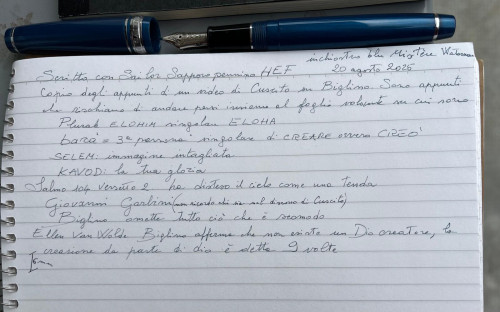 inchiostro blu Mystère Waterman
Scritto con Sailor Sapporo pennino HEF 20 agosto 2025
Copio degli appunti di un video di Curcito su Biglino. Sono appunti
che rischiano di andare persi insieme al foglio volante su cui sono
Plurale ELOHIM singolare ELOHA
bara = 3ª persona singolare di CREARE ovvero CREÒ
SELEM: immagine intagliata
KAVOD: la tua gloria
Salmo 104 versetto 2 ha disteso il cielo come una tenda
Giovanni Garbini
Biglino omette tutto ciò che è scomodo
Ellen Van Wolde Biglino afferma che non esiste un Dio creatore, la
creazione da parte di dio è detta 9 volte